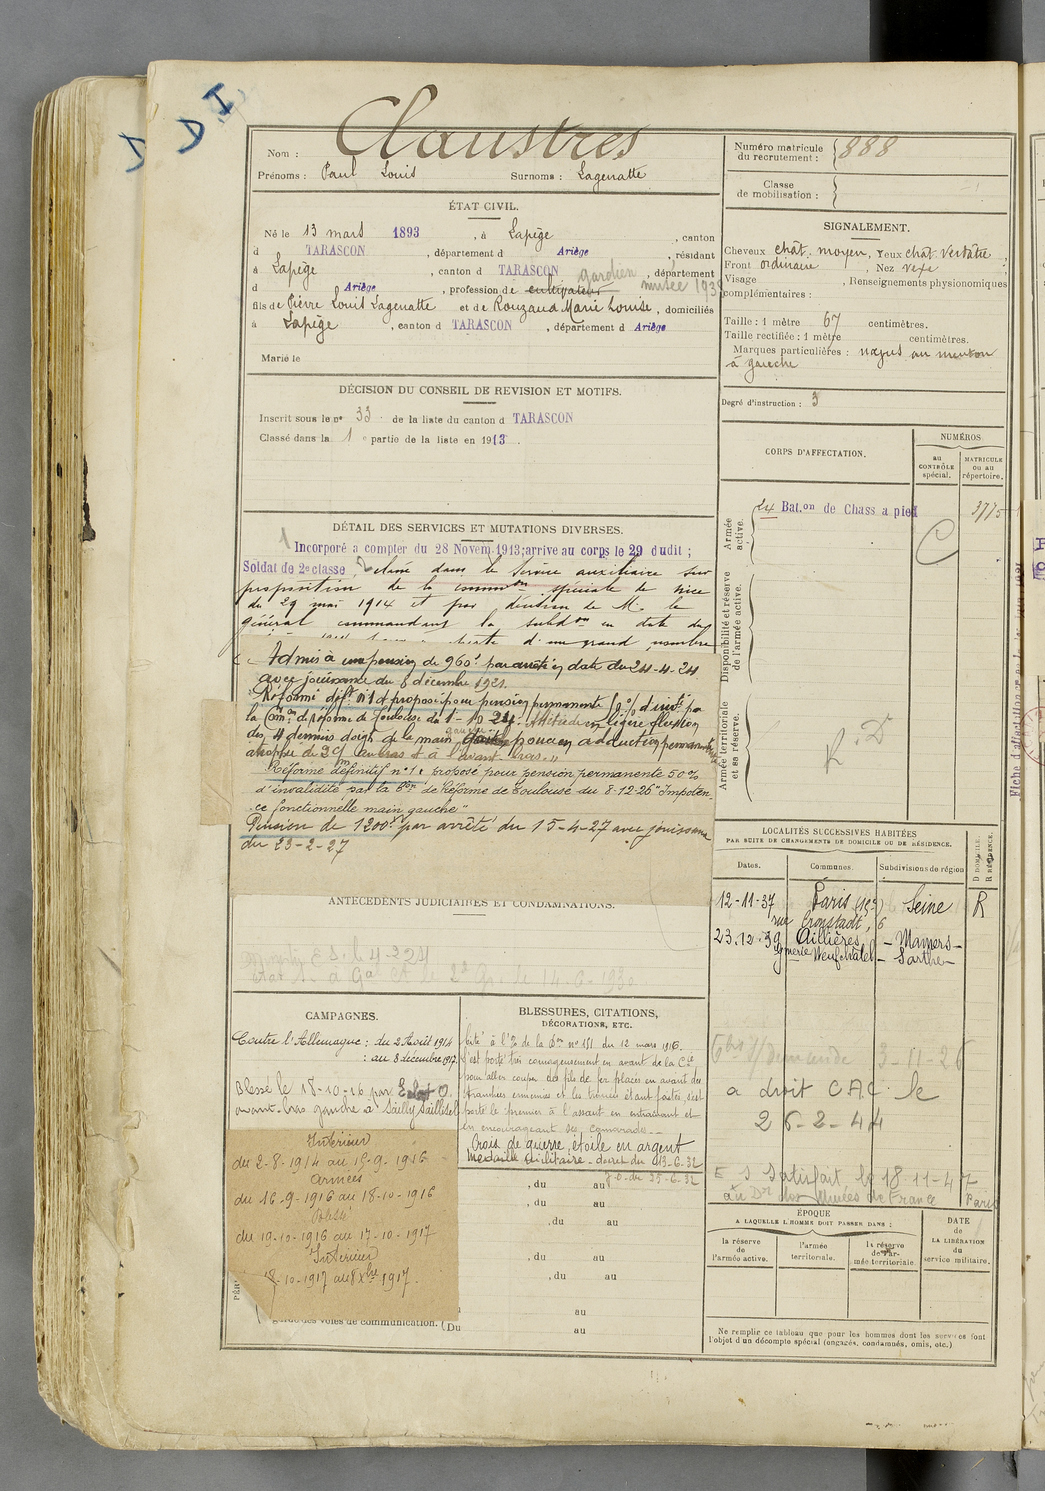 D D I
Claustres
Nom :
Prénoms : Paul Louis Surnoms : Lagenatte
ÉTAT CIVIL.
Né le 13 mars 1893, à Lapège, canton
d TARASCON, département d Ariège, résidant
à Lapège, canton d TARASCON, département
gardien musée 1939
d Ariège, profession de cultivateur
fils de Pierre Louis Lagenatte et de Rouzaud Marie Louise, domiciliés
à Lapège, canton d TARASCON, département d Ariège
Marié le
DÉCISION DU CONSEIL DE REVISION ET MOTIFS.
Inscrit sous le n° 33 de la liste du canton d TARASCON
Classé dans la 1e partie de la liste en 1913.
DÉTAIL DES SERVICES ET MUTATIONS DIVERSES.
Incorporé a compter du 28 Novem. 1913; arrive au corps le 29 dudit ;
Soldat de 2e classe, classé dans le service auxiliaire sur
proposition de la common spéciale de Nice
du 29 mai 1914 et par décision de M. le
général commandant la subdon en date du
Admis à une pension de 960f par arrêté en date du 24-4-24
avec jouissance du 8 décembre 1921.
Réformé déft n°1 et proposé pour pension permanente
la Con de réforme de Toulouse du 1-10-24. légère flexion
des 4 derniers doigts de la main gauche pouce en adduction permanente
atrophie de 2c/m au bras et à l'avant-bras."
Réforme définitif n°1, proposé pour pension permanente 50%
d'invalidité par la Con de Réforme de Toulouse du 8-12-26 "Impoten-
ce fonctionnelle main gauche"
Pension de 1200f par arrêté du 15-4-27 avec jouissance
du 23-2-27
ANTÉCÉDENTS JUDICIAIRES ET CONDAMNATIONS.
CAMPAGNES.
Contre l'Allemagne : du 2 Août 1914
: au 8 décembre 1917.
Blessé le 18-10-16 par Eclat O.
avant-bras gauche à Sailly Saillisel
Intérieur
du 2-8-1914 au 15-9-1916
Armées
du 16-9-1916 au 18-10-1916
Blessé
du 19-10-1916 au 17-10-1917
Intérieur
18-10-1917 au 8 Xbre 1917.
garde des voies de communication. (Du
BLESSURES, CITATIONS,
DÉCORATIONS, ETC.
Cité à l'O. de la Don n° 181 du 12 mars 1916.
S'est porté très courageusement en avant de la Cie
pour aller couper des fils de fer placés en avant des
tranchées ennemies et les travaux étant faits, s'est
porté le premier à l'assaut en entraînant et
en encourageant ses camarades.
Croix de guerre, étoile en argent
Médaille militaire - décret du 13-6-32
J.O. du 25-6-32
, du au
, du au
, du au
, du au
, du au
au
au
Numéro matricule du recrutement : 888
Classe de mobilisation :
SIGNALEMENT.
Cheveux chât. moyen, Yeux chât. verdâtre ;
Front ordinaire, Nez vexe
Visage, Renseignements physionomiques
complémentaires :
Taille : 1 mètre 67 centimètres.
Taille rectifiée : 1 mètre centimètres.
Marques particulières : nævus au menton
à gauche
Degré d'instruction : 3
CORPS D'AFFECTATION.
NUMÉROS
au CONTRÔLE spécial.
MATRICULE ou au répertoire.
Armée active.
24 Bat.on de Chass a pied
Disponibilité et réserve de l'armée active.
Armée territoriale et sa réserve.
R. D.
LOCALITÉS SUCCESSIVES HABITÉES
PAR SUITE DE CHANGEMENTS DE DOMICILE OU DE RÉSIDENCE.
Dates. Communes. Subdivisions de région
D DOMICILE. R RÉSIDENCE.
12-11-37 Paris (15e) Seine R
rue Cronstadt, 6
23.12.39 Aillières - Mamers -
Gmerie Neufchâtel - Sarthe -
Demande 3-11-26
a droit C.A.C. le
26-2-44
E S Satisfait, le 18-11-47
au Dr des Musées de France Paris
ÉPOQUE
A LAQUELLE L'HOMME DOIT PASSER DANS :
la réserve de l'armée active.
l'armée territoriale.
la réserve de l'armée territoriale.
DATE DE LA LIBÉRATION du service militaire.
Ne remplir ce tableau que pour les hommes dont les services font
l'objet d'un décompte spécial (engagés, condamnés, omis, etc.)